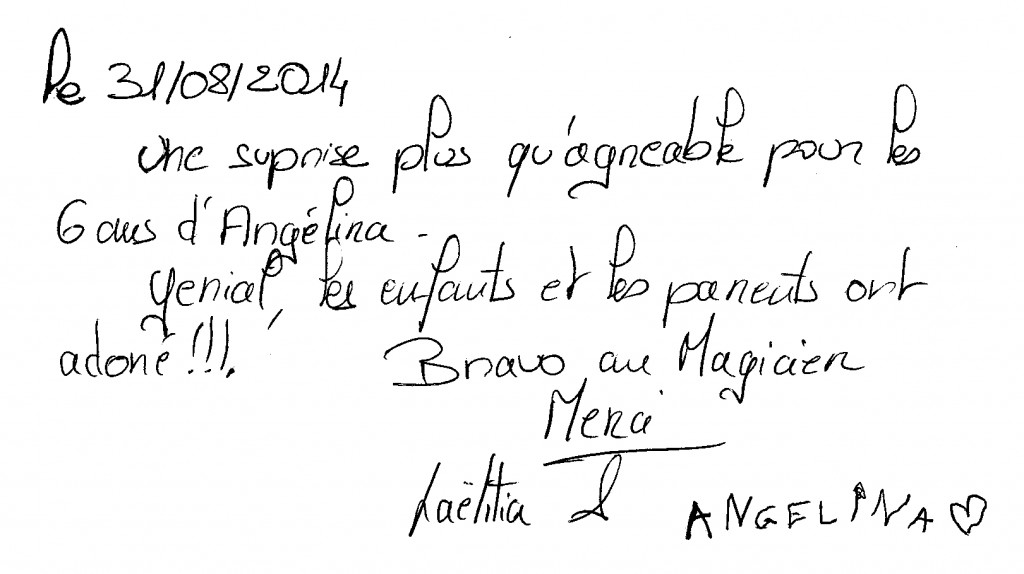 Le 31/08/2014
Une suprise plus qu'agréable pour les
6 ans d'Angélina.
Génial, les enfants et les parents ont
adoré !!!. Bravo au Magicien
Merci
Laëtitia &
ANGELINA ♡